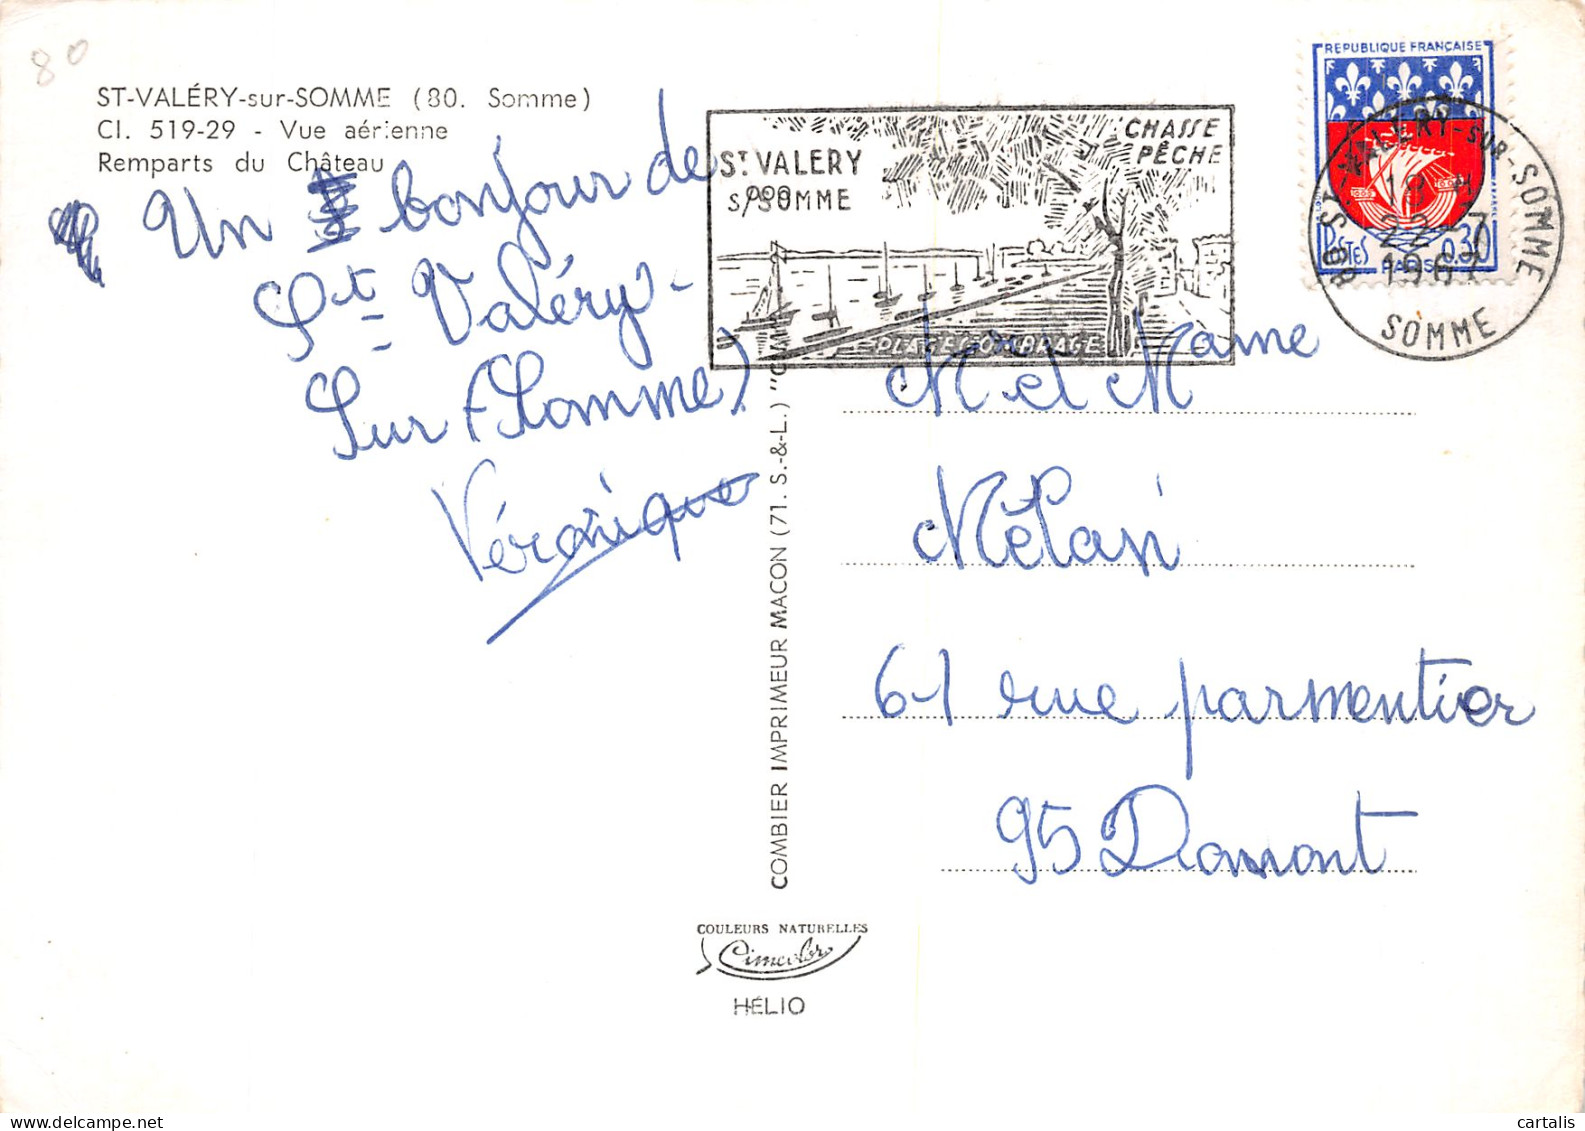 80
ST-VALÉRY-sur-SOMME (80. Somme)
Cl. 519-29 - Vue aérienne
Remparts du Château
Un bonjour de
St Valéry-
Sur (Somme)
Véronique
COMBIER IMPRIMEUR MACON (71. S.-&-L.) "CIM"
COULEURS NATURELLES
Cimcolor
HÉLIO
ST VALERY
S/SOMME
CHASSE
PÊCHE
PLAGE OMBRAGE
REPUBLIQUE FRANÇAISE
POSTES
0,30
PARIS
80 ST-VALERY-SUR-SOMME
22
SOMME
Mr et Mame
Mélani
61 rue parmentier
95 Domont
cartalis